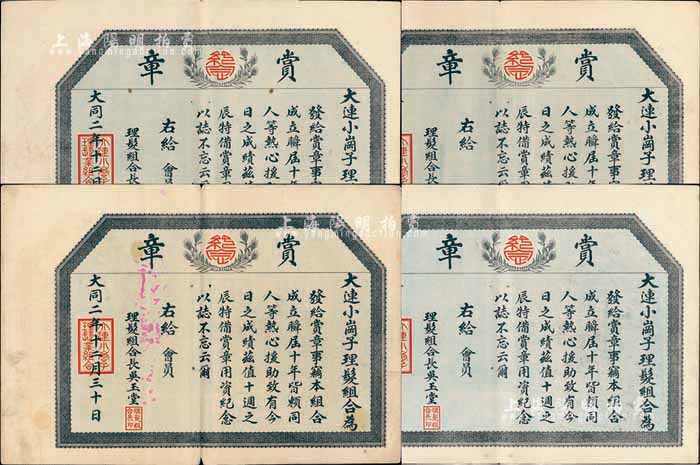 賞章
大連小崗子理髮組合為
發給賞章事竊本組合
成立瞬屆十年
人等熱心援
日之成績茲
辰特備賞章
以誌不忘云爾
右給 會員
理髮組合長
大同二年十二月
賞章
大連小崗子理
發給賞章事
成立瞬屆十年
人等熱心援
日之成績茲
辰特備賞章
以誌不忘云爾
右給
理髮組合長
賞章
大連小崗子理髮組合為
發給賞章事竊本組合
成立瞬屆十年皆賴同
人等熱心援助致有今
日之成績茲值十週之
辰特備賞章用資紀念
以誌不忘云爾
右給 會員
理髮組合長吳玉堂
大同二年十二月三十日
賞章
大連小崗子理髮組合為
發給賞章事竊本組合
成立瞬屆十年皆賴同
人等熱心援助致有今
日之成績茲值十週之
辰特備賞章用資紀念
以誌不忘云爾
右給 會員
理髮組合長吳玉堂
上海陽明拍賣